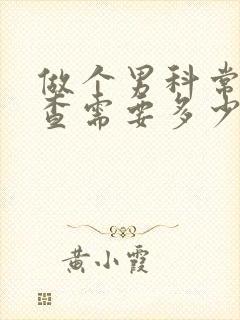 做个男科常
查需要多少
黄小霞